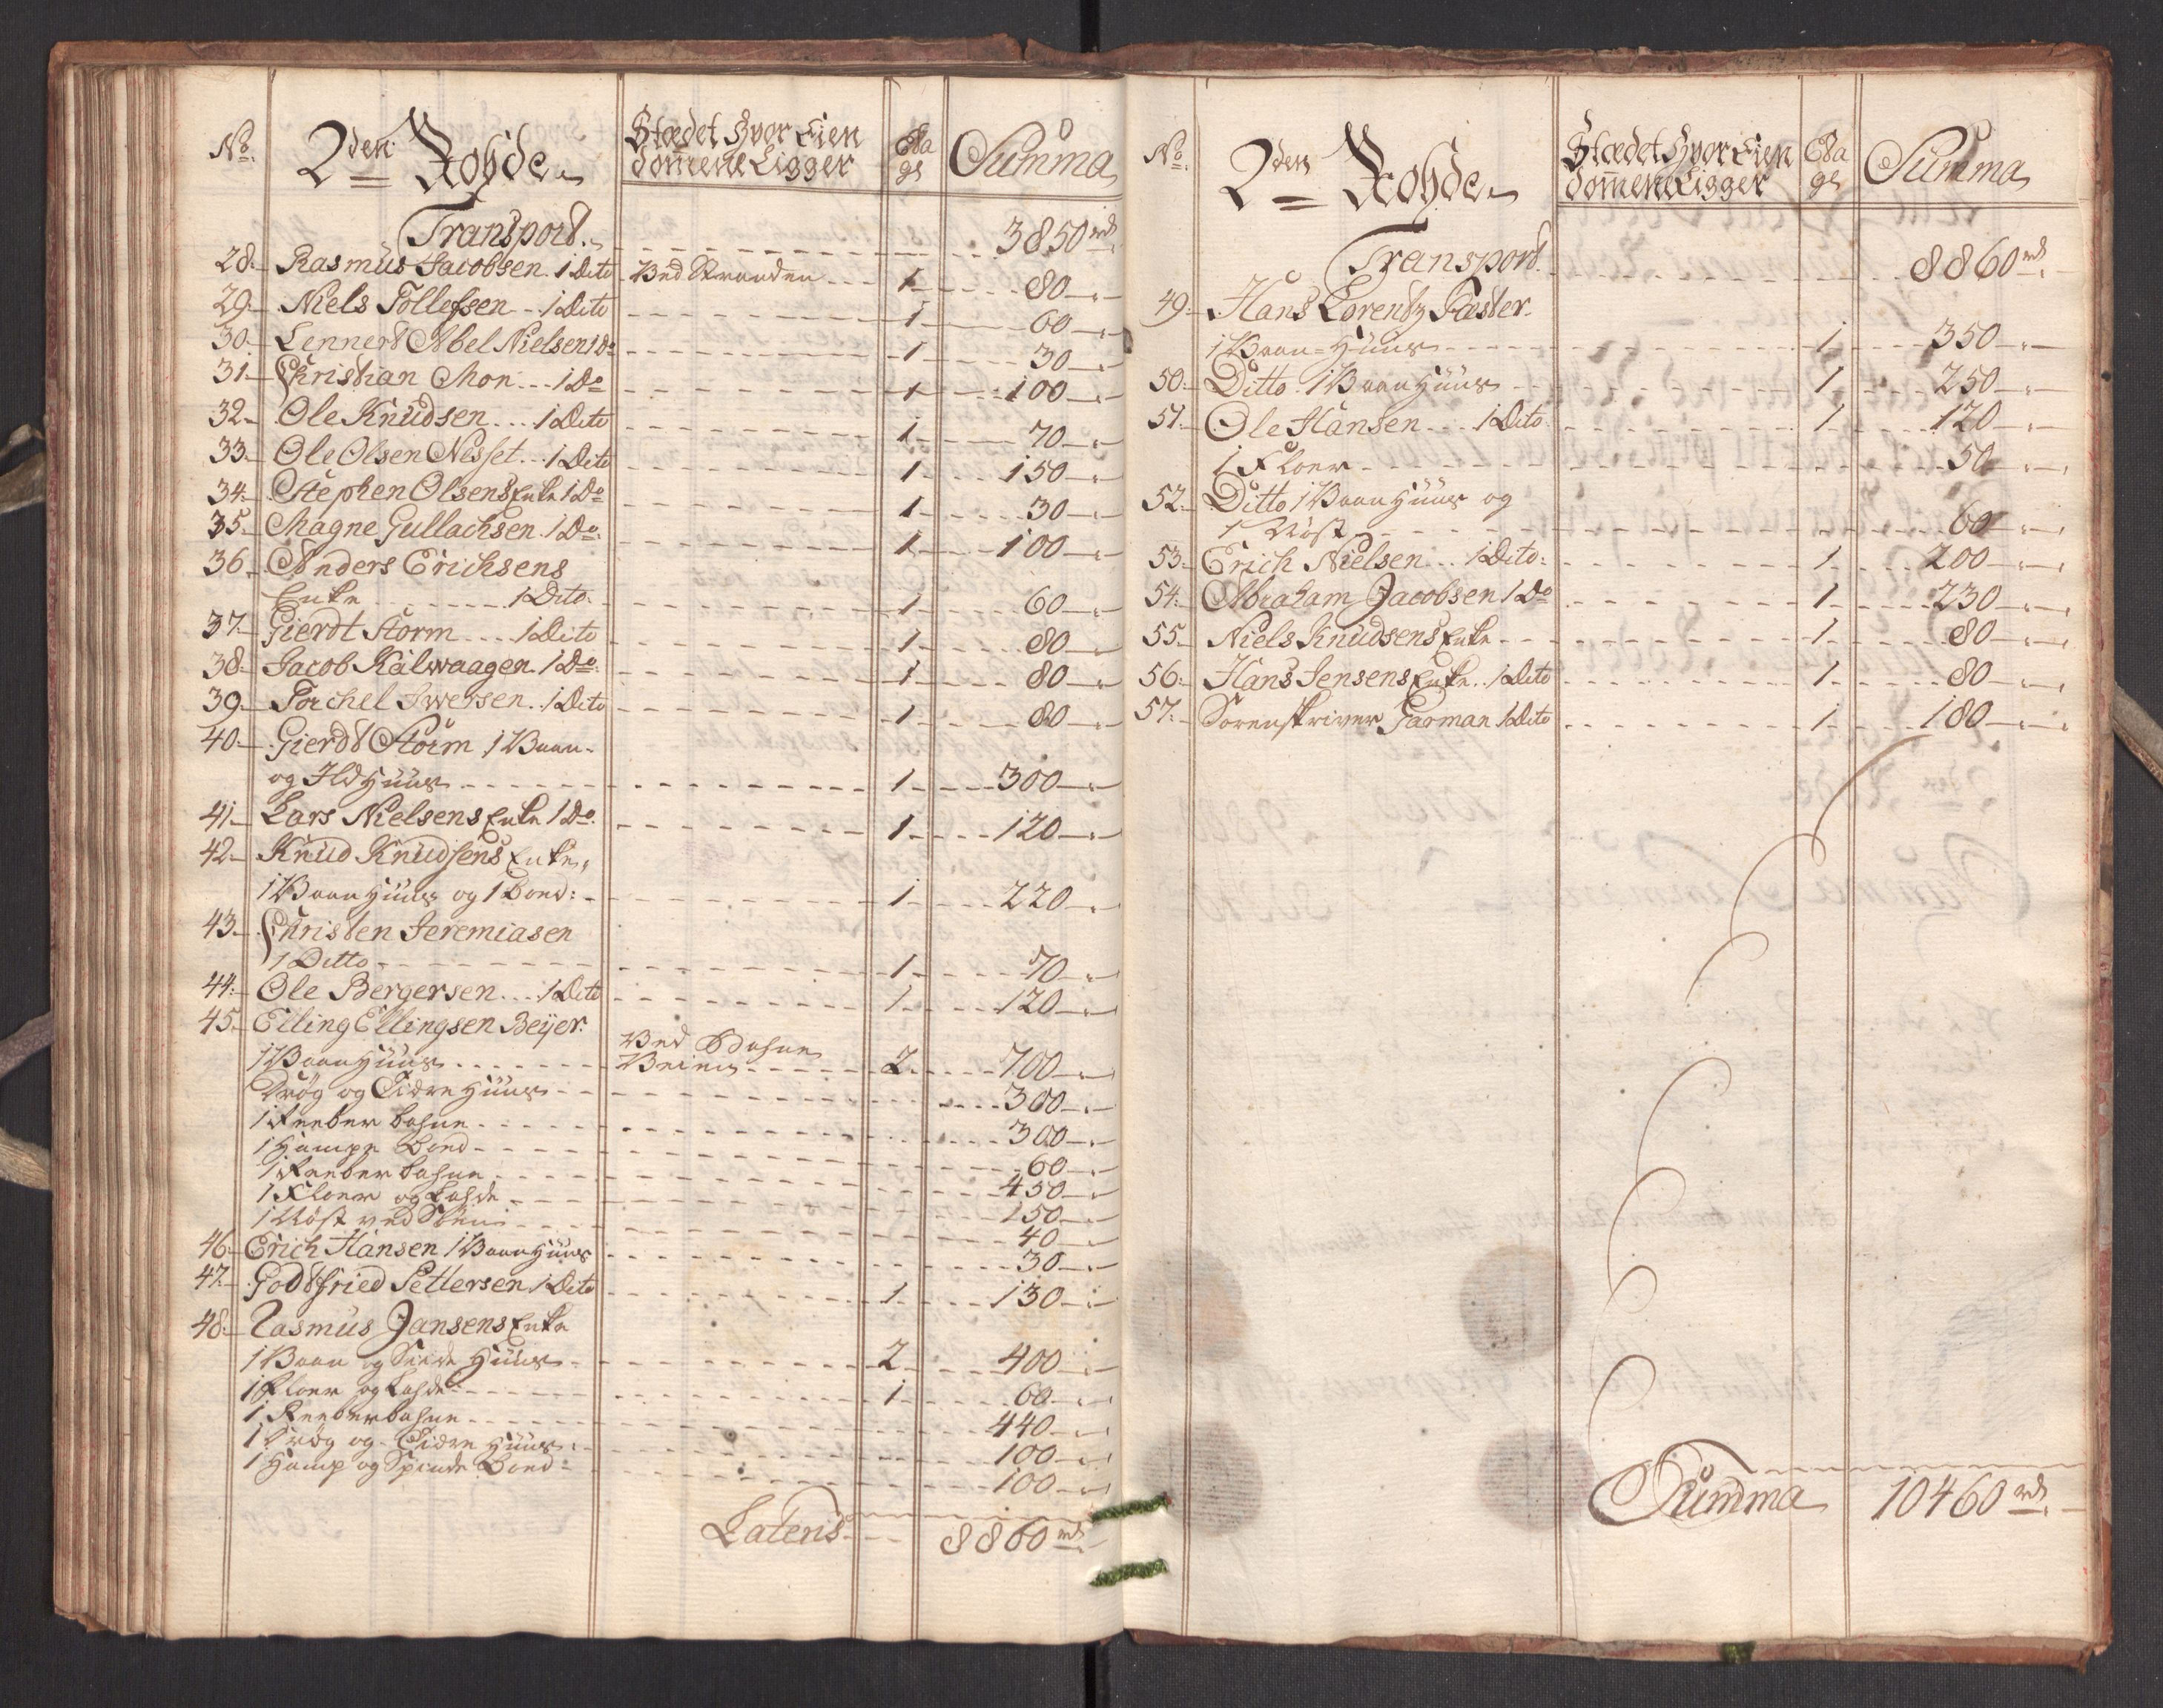 No. 2den Rohde. Stædet Hvor Eien Eta Summa
dommene Ligger ge
Transport. 3850 rd
28. Rasmus Jacobsen. 1 Dito Ved Stranden 1 80
29. Niels Tollefsen 1 Dito 1 60
30. Lennert Abel Nielsen 1 Do 1 30
31. Christian Mon 1 Do 1 100
32. Ole Knudsen 1 Dito 1 70
33. Ole Olsen Nesset 1 Dito 1 150
34. Stephen Olsens Enke 1 Do 1 30
35. Magne Gullachsen 1 Do 1 100
36. Anders Erichsens
Enke 1 Dito. 1 60
37. Gierdt Storm 1 Dito 1 80
38. Jacob Kalwaagen 1 Do 1 80
39. Torchel Iwersen 1 Dito 1 80
40. Gierdt Storm 1 Vaan-
og Ild Huus 1 300
41. Lars Nielsens Enke 1 Do 1 120
42. Knud Knudsens Enke,
1 Vaan Huus og 1 Boed: 1 220
43. Christen Jeremiasen
1 Ditto 1 70
44. Ole Bergersen 1 Dito 1 120
45. Elling Ellingsen Beyer.
1 Vaan Huus Ved Bahne Veien 2 700
Drög og Tidre Huus 300
1 Reeber bahne 300
1 Hampe Boed 60
1 Reeber bahne 450
1 Floer og Lahde 150
1 Nöst ved Söen 40
46. Erich Hansen 1 Vaan Huus 30
47. Godtfried Pettersen 1 Dito 1 130
48. Rasmus Jansens Enke
1 Vaan og Huus 2 400
1 Floer og Lahde 1 60
1 Reeberbahne 440
1 Drög og Tidre Huus 100
1 Hamp og Spinde Boed 100
Lateris 8860 rd
No. 2den Rohde. Stædet Hvor Eien Eta Summa
dommene Ligger ge
Transport. 8860 rd
49. Hans Lorentz Faster.
1 Vaan-Huus 1 350
50. Ditto 1 Vaan Huus 1 250
51. Ole Hansen 1 Dito 1 120
1 Floer 50
52. Ditto 1 Vaan Huus og
1 Nöst 60
53. Erich Nielsen 1 Dito: 1 200
54. Abraham Jacobsen 1 Do 1 230
55. Niels Knudsens Enke 1 80
56. Hans Jensens Enke 1 Dito 1 80
57. Sorenskriver Garman 1 Dito 1 180
Summa 10460 rd